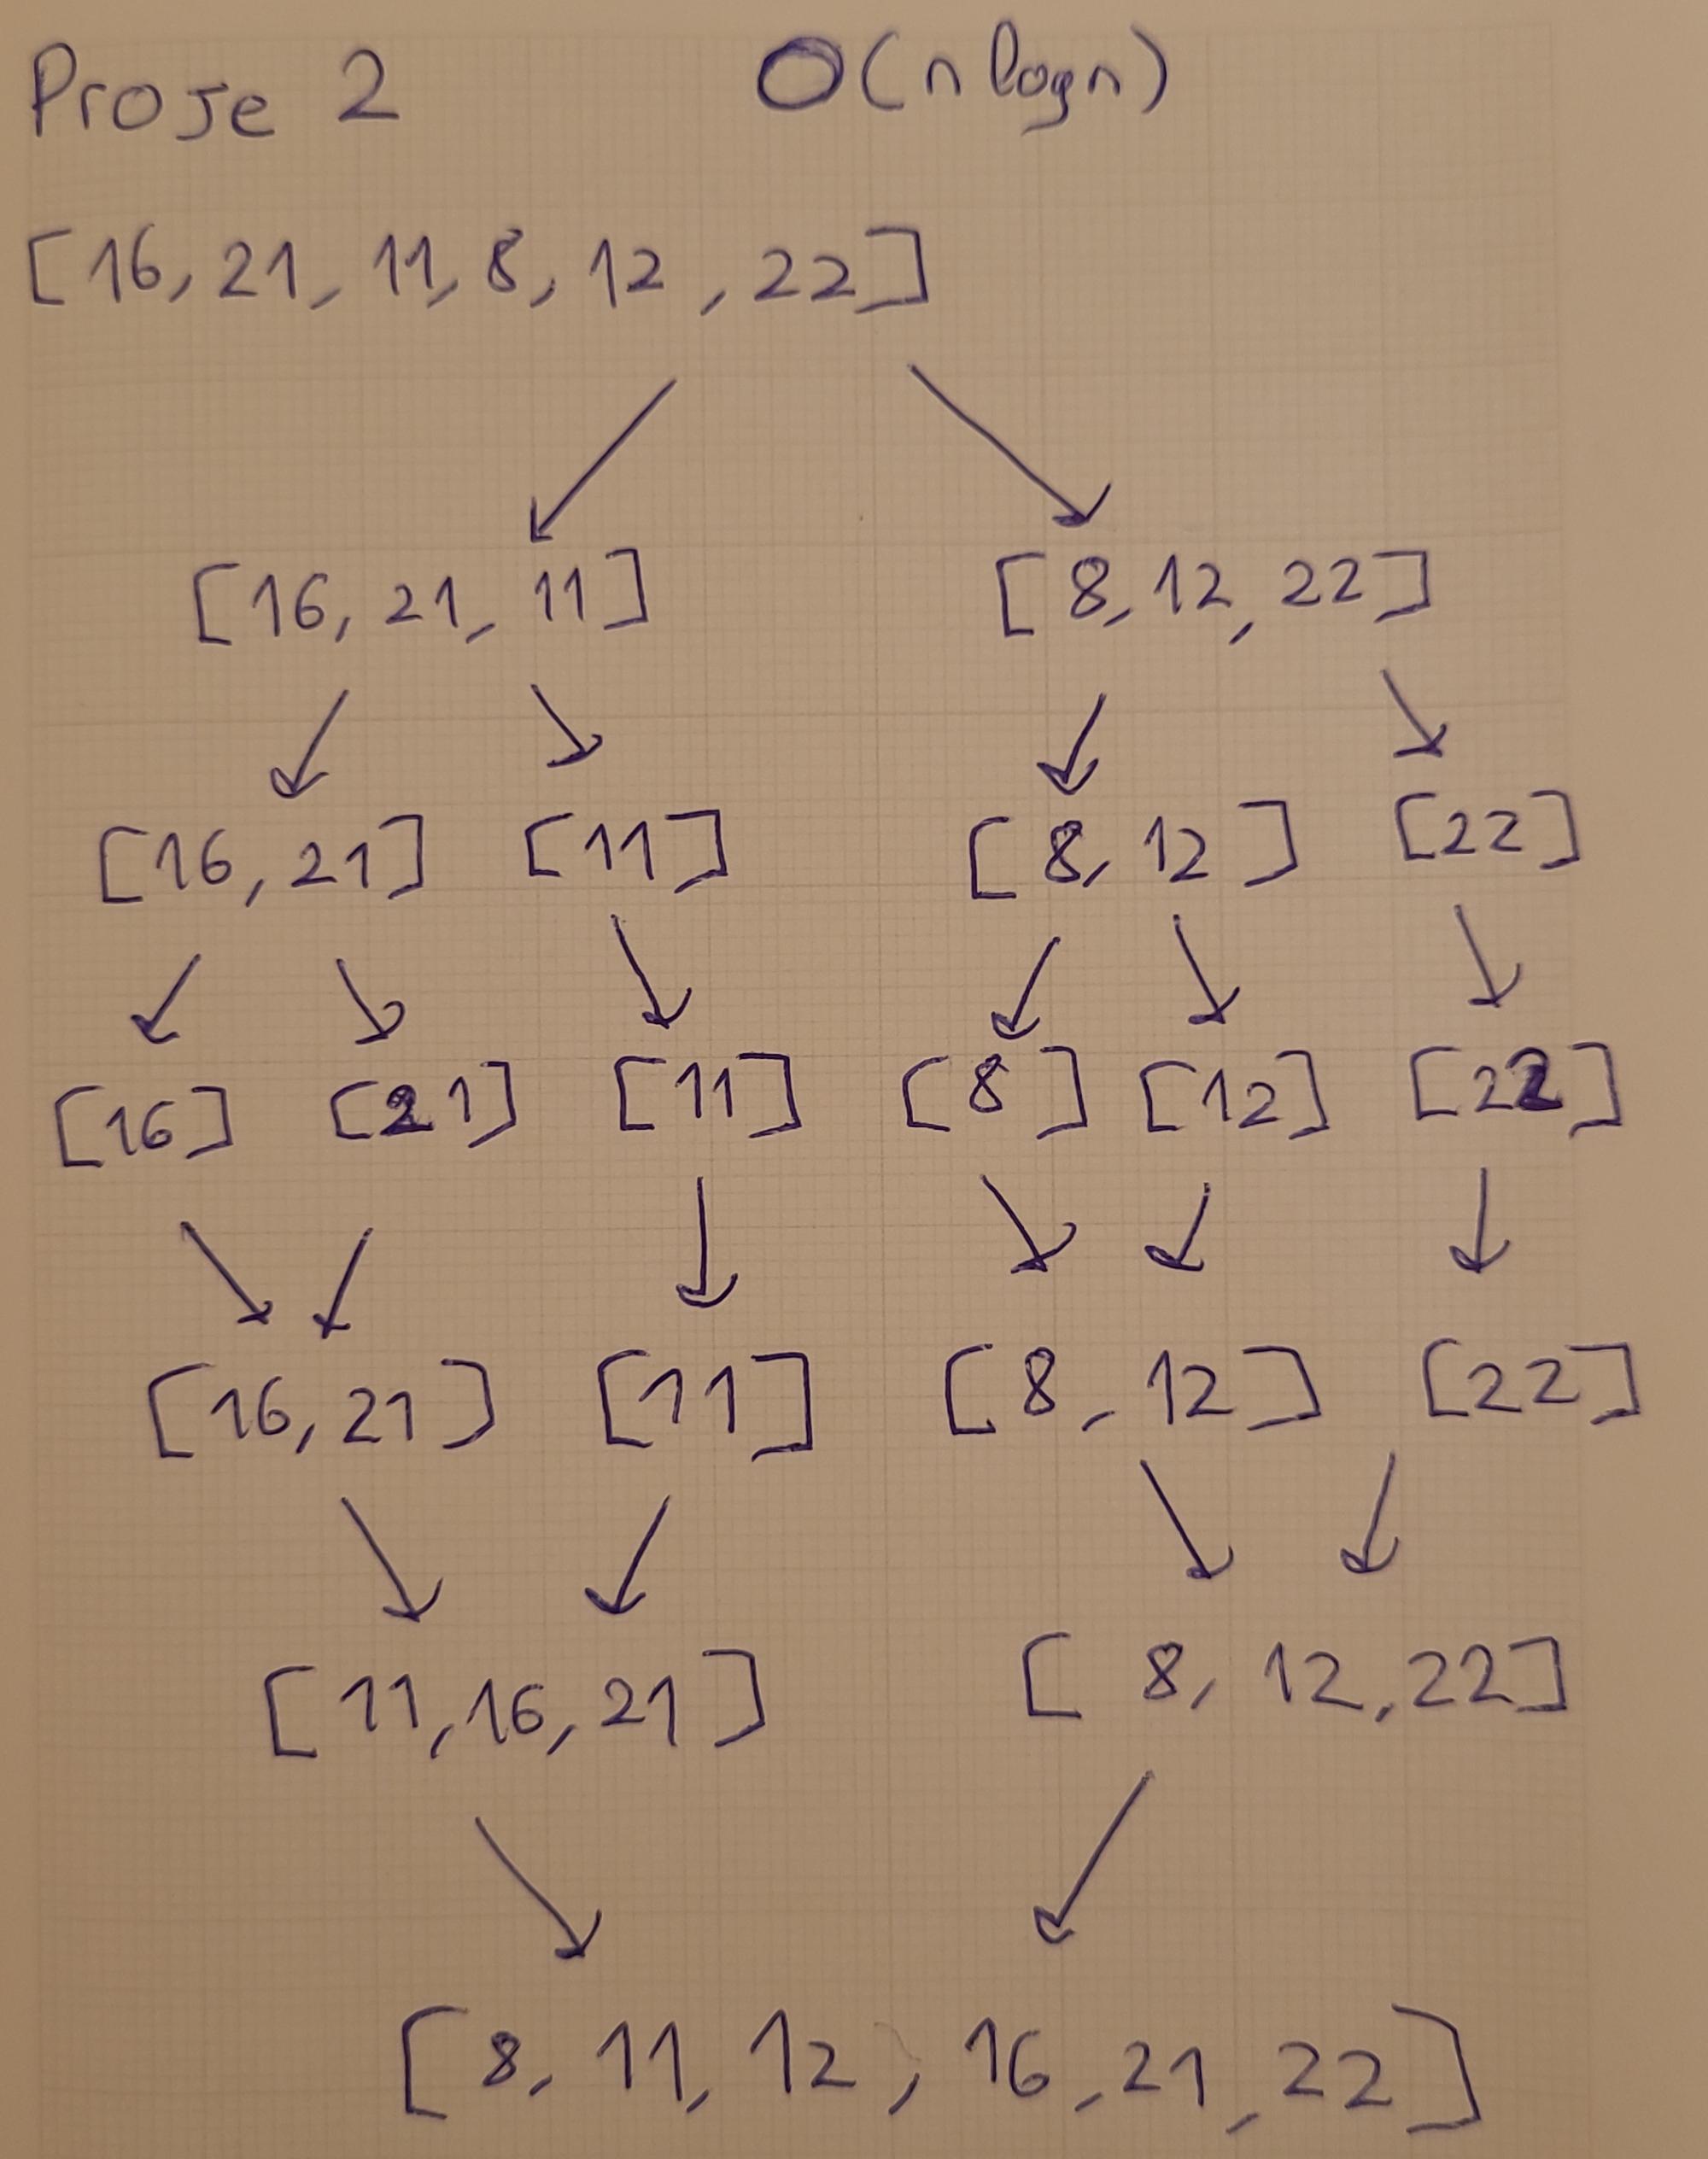 Proje 2 O(n logn)
[16, 21, 11, 8, 12, 22]
[16, 21, 11] [8, 12, 22]
[16, 21] [11] [8, 12] [22]
[16] [21] [11] [8] [12] [22]
[16, 21] [11] [8, 12] [22]
[11, 16, 21] [8, 12, 22]
[8, 11, 12, 16, 21, 22]